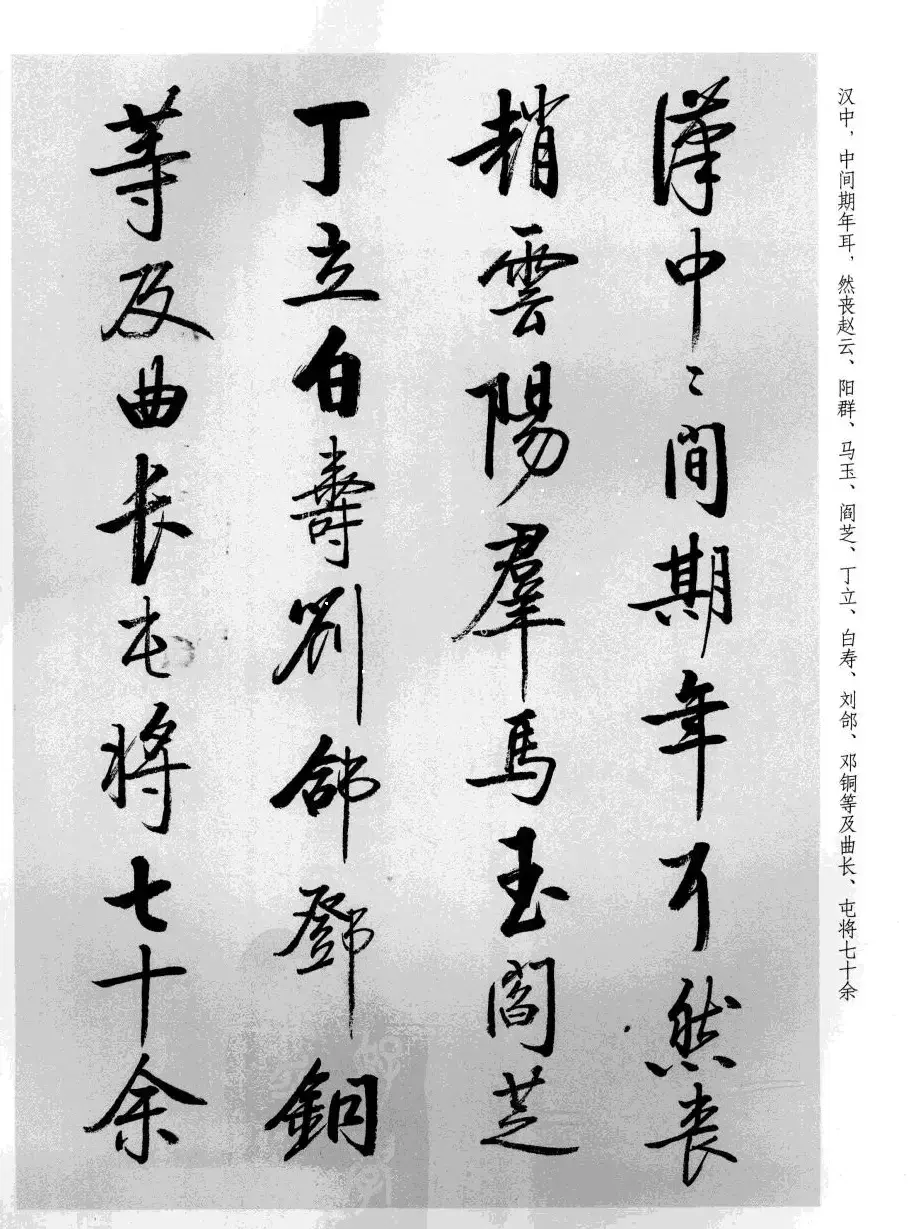 汉中，中间期年耳，然丧赵云、阳群、马玉、阎芝、丁立、白寿、刘郃、邓铜等及曲长、屯将七十余
漢中〻間期年耳然丧
趙雲陽羣馬玉閻芝
丁立白壽劉郃鄧銅
等及曲长屯將七十余